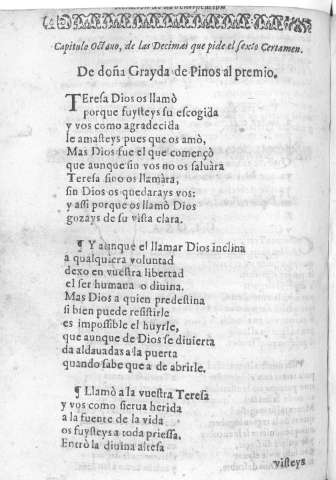 Capitulo Octauo, de las Decimas que pide el sexto Certamen.
De doña Grayda de Pinos al premio.
TEresa Dios os llamò
porque fuysteys su escogida
y vos como agradecida
le amasteys pues que os amò,
Mas Dios fue el que començò
que aunque sin vos no os saluàra
Teresa sino os llamàra,
sin Dios os quedarays vos:
y assi porque os llamò Dios
gozays de su vista clara.
¶ Y aunque el llamar Dios inclina
a qualquiera voluntad
dexo en vuestra libertad
el ser humana o diuina.
Mas Dios a quien predestina
si bien puede resistirle
es impossible el huyrle,
que aunque de Dios se diuierta
da aldauadas a la puerta
quando sabe que a de abrirle.
¶ Llamò a la vuestra Teresa
y vos como sierua herida
a la fuente de la vida
os fuysteys a toda priessa,
Entrò la diuina altesa
visteys